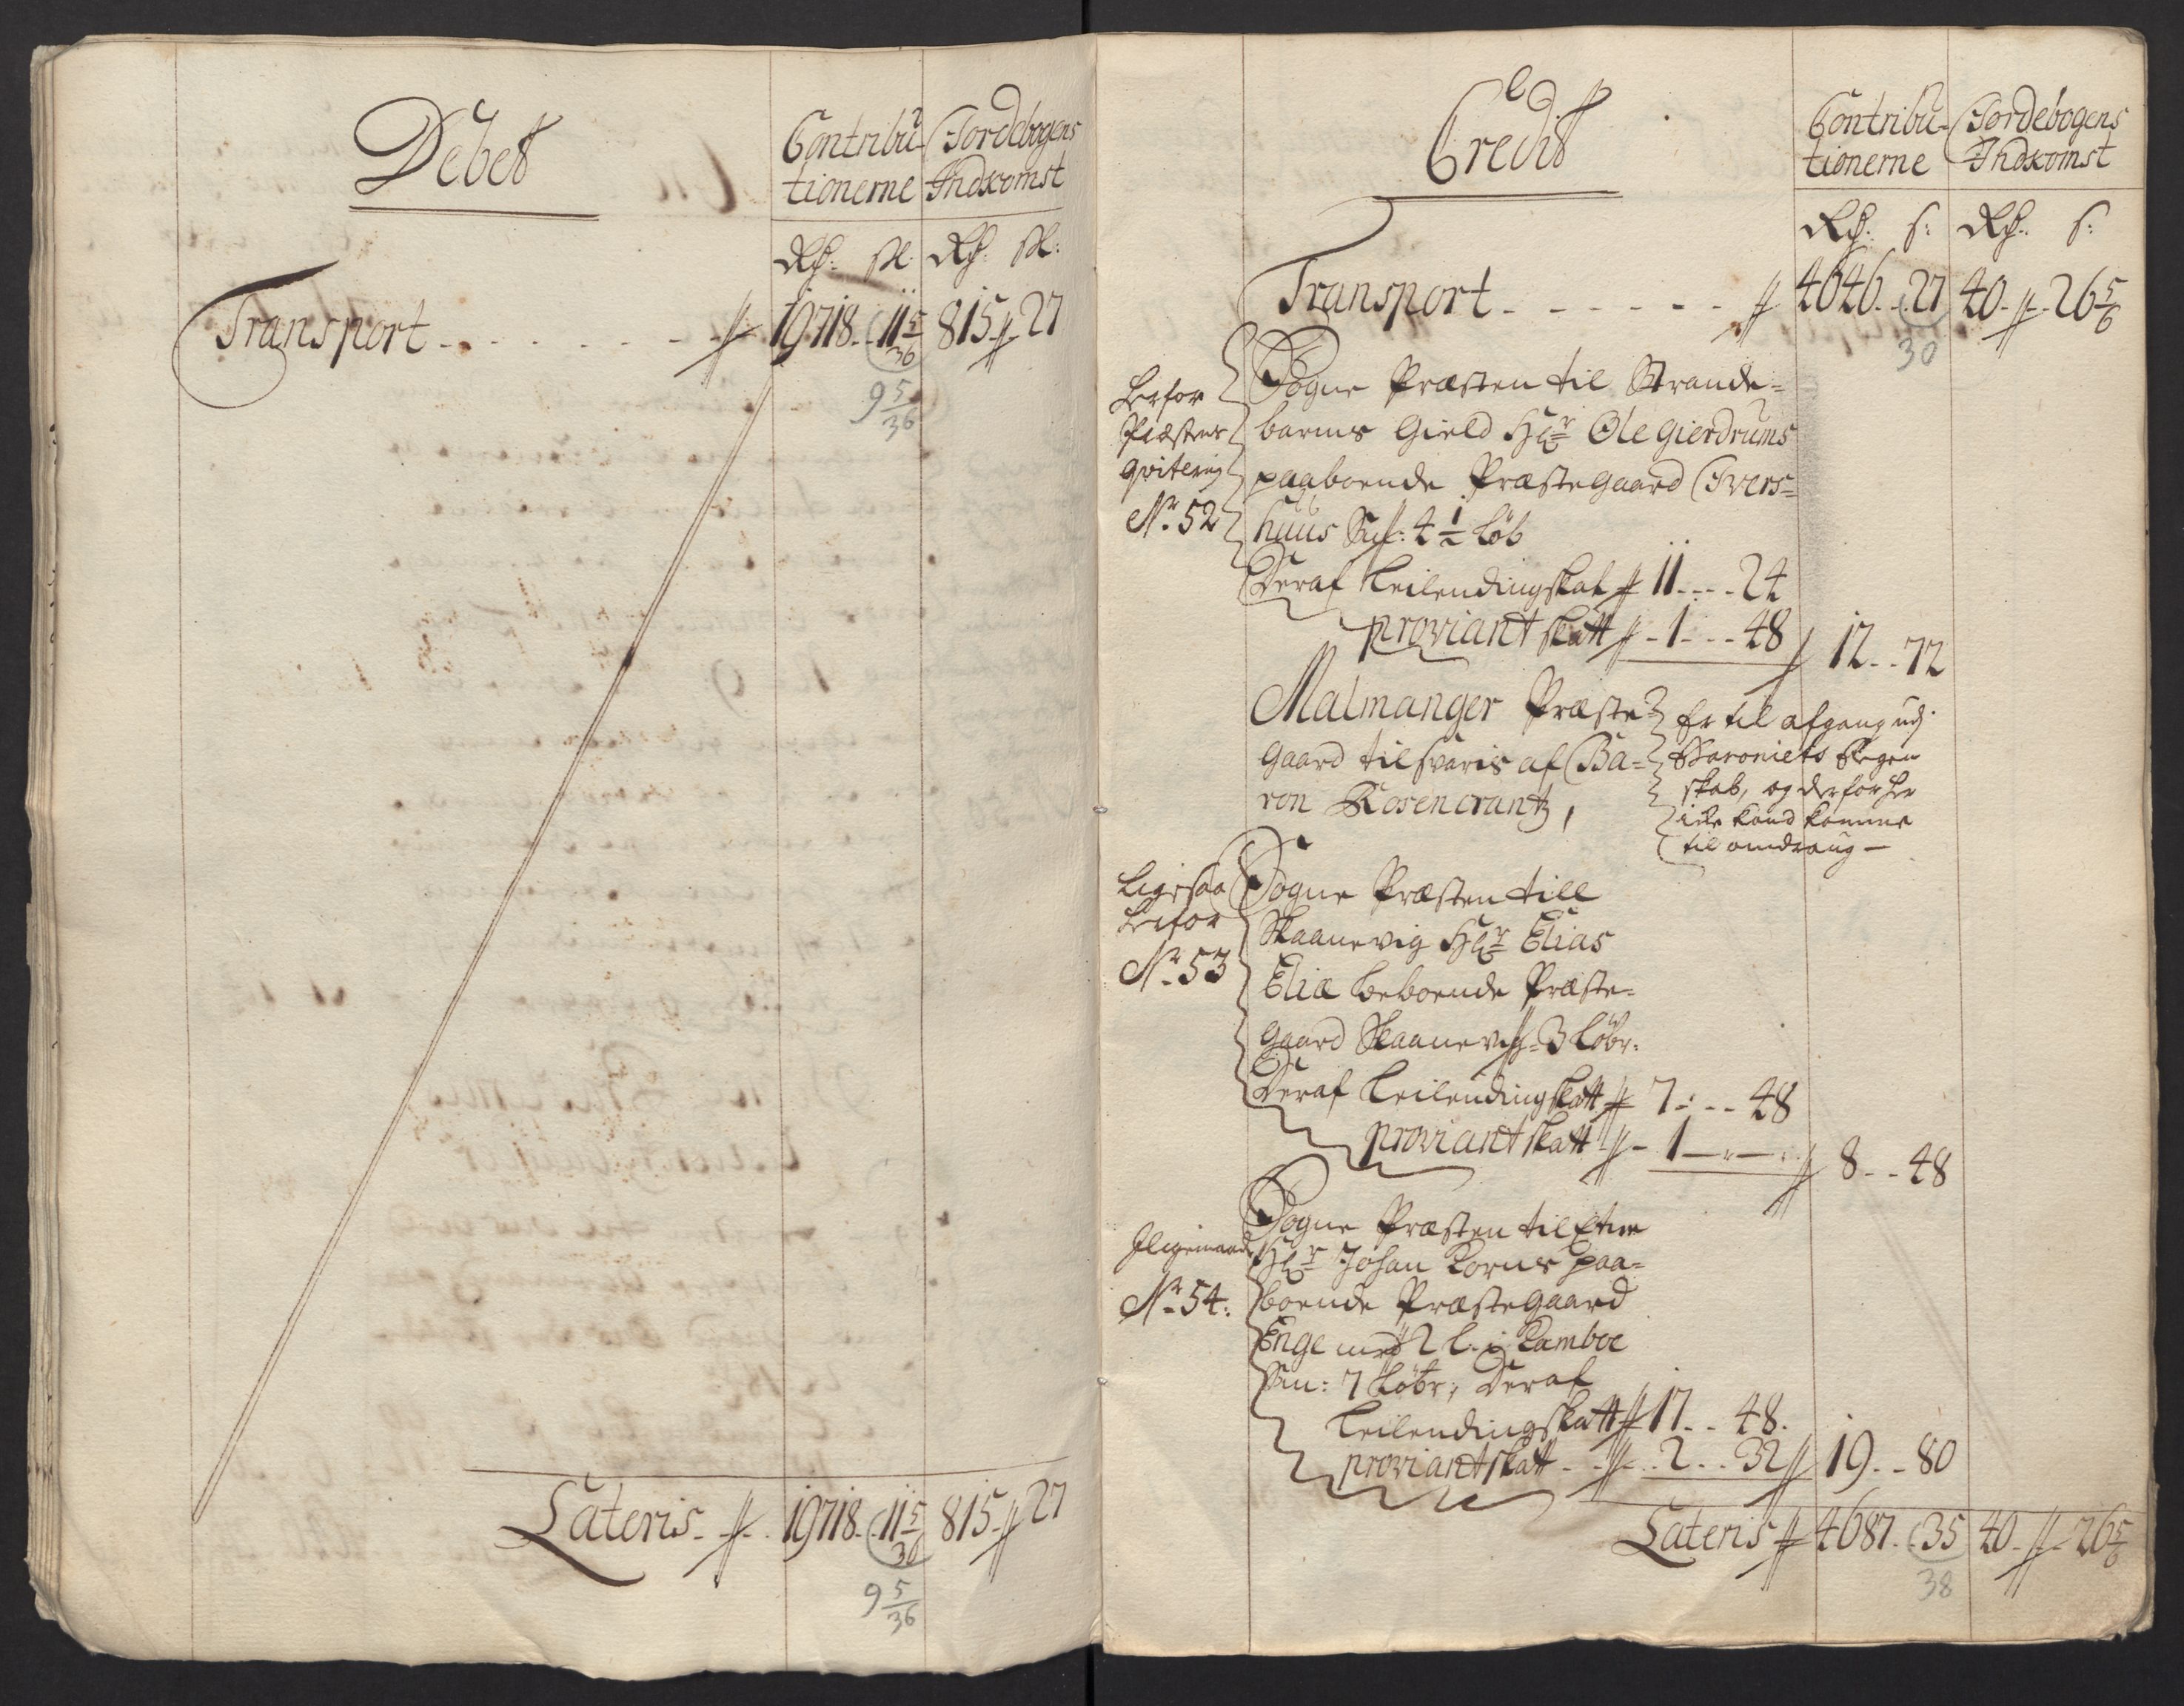 Debet
Contribu- Jordebogens
tionerne Indkomst
Rd: sk: Rd: sk:
Transport - - - - - - - 19718 - 11 5/36 815 - 27
9 5/36
Lateris - - 19718 - 11 5/36 815 - 27
9 5/36
Credit
Contribu- Jordebogens
tionerne Indkomst
Rd: s: Rd: s:
Transport - - - - - - 4646 - 27 40 - 26 5/6
30
Herfor
Præstens
qvitering
No. 52
Sogne Præsten til Strande-
barms Gield Hr Ole Gierdrums
paaboende Præstegaard Ivers-
huus 4 1/2 Løb
Deraf Leilendingskat 11 - - - 24
proviant skatt - 1 - - - 48 12 - - 72
Malmanger Præste-
gaard tilsvaris af Ba-
ron Rosencrantz,
Er til afgang udj
Baroniets Regen
skab, og derfor her
icke kand komme
til
Ligesaa
Herfor
No. 53
Sogne Præsten till
Skaanevig Hr Elias
Eliæ beboende Præste-
gaard Skaanevig - 3 Løbr.
Deraf Leilendingskatt 7 - - - 48
proviantskatt - 1 - - - 8 - - 48
Iligemaade
No. 54:
Sogne Præsten til Etne
Hr Johan Korns paa-
boende Præstegaard
Enge med 2 l. i
7 Løbr, Deraf
Leilendingskatt 17 - - 48.
proviantskatt - - 2 - - 32 19 - - 80
Lateris 4687 - 35 40 - 26 5/6
38